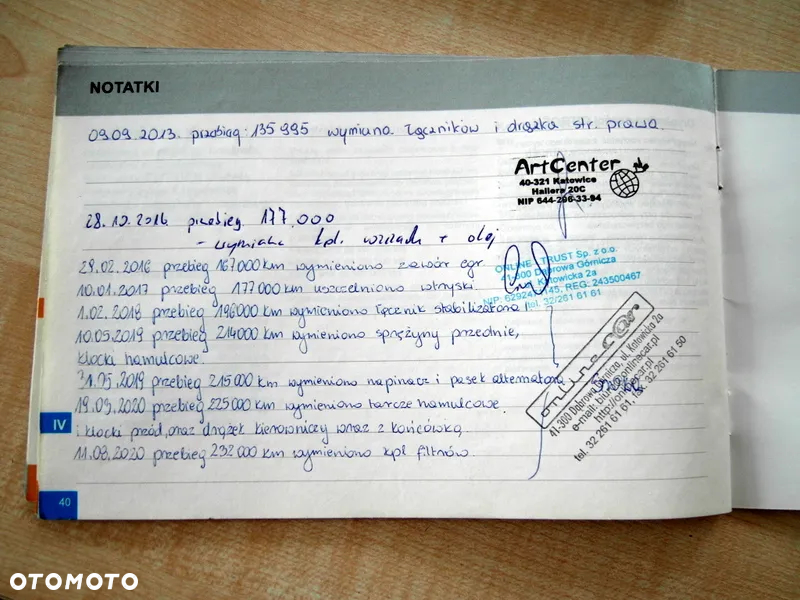 NOTATKI
09.09.2013. przebieg: 135 995 wymiana łączników i drążka str. prawa.
ArtCenter
40-321 Katowice
Hallera 20C
NIP 644-296-33-94
28.10.2016 przebieg 177,000
- wymiana kpl. wzrzach + olej
29.02.2016 przebieg 167000 km wymieniono zawór egr
10.01.2017 przebieg 177000 km uszczelniono wtryski.
1.02.2018 przebieg 196000 km wymieniono łącznik stabilizatora
10.05.2019 przebieg 214000 km wymieniono sprężyny przednie,
klocki hamulcowe.
31.05.2019 przebieg 215000 km wymieniono napinacz i pasek alternatora
19.03.2020 przebieg 225000 km wymieniono tarcze hamulcowe
i klocki przód, oraz drążek kierowniczy wraz z końcówką
11.08.2020 przebieg 232000 km wymieniono kpl filtrów.
ONLINE TRUST Sp. z o.o.
41-300 Dąbrowa Górnicza
Katowicka 2a
NIP: 145, REG: 243500467
tel. 32/261 61 61
onlinecar
41-300 Dąbrowa Górnicza, ul. Katowicka 2a
e-mail: biuro@onlinecar.pl
http://onlinecar.pl
tel. 32 261 61 61, fax. 32 261 61 50
IV
40
OTOMOTO